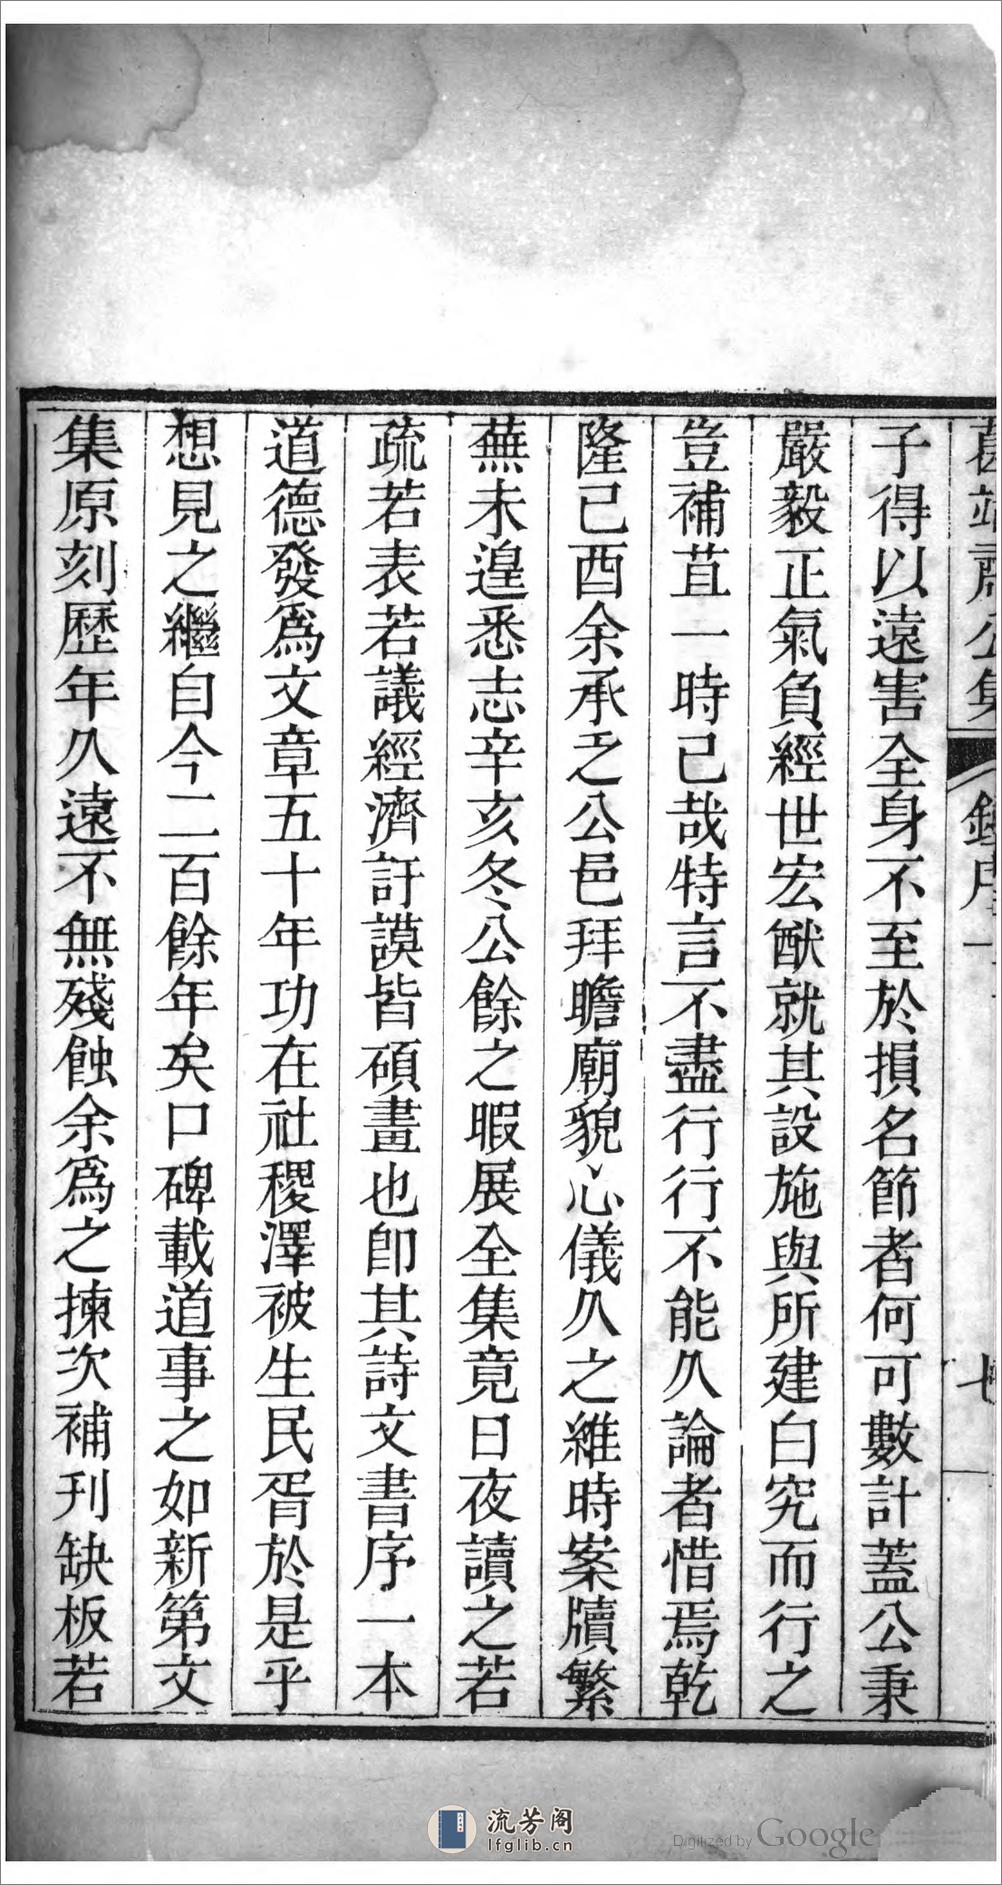 葛端肅公集
子得以遠害全身不至於損名節者何可數計蓋公秉
嚴毅正氣負經世宏猷就其設施與所建白究而行之
豈補苴一時已哉特言不盡行行不能久論者惜焉乾
隆己酉余承乏公邑拜瞻廟貌心儀久之維時案牘繁
蕪未遑悉志辛亥冬公餘之暇展全集竟日夜讀之若
疏若表若議經濟訏謨皆碩畫也卽其詩文書序一本
道德發爲文章五十年功在社稷澤被生民胥於是乎
想見之繼自今二百餘年矣口碑載道事之如新第文
集原刻歷年久遠不無殘蝕余爲之揀次補刊缺板若
流芳阁
lfglib.cn
Digitized by Google